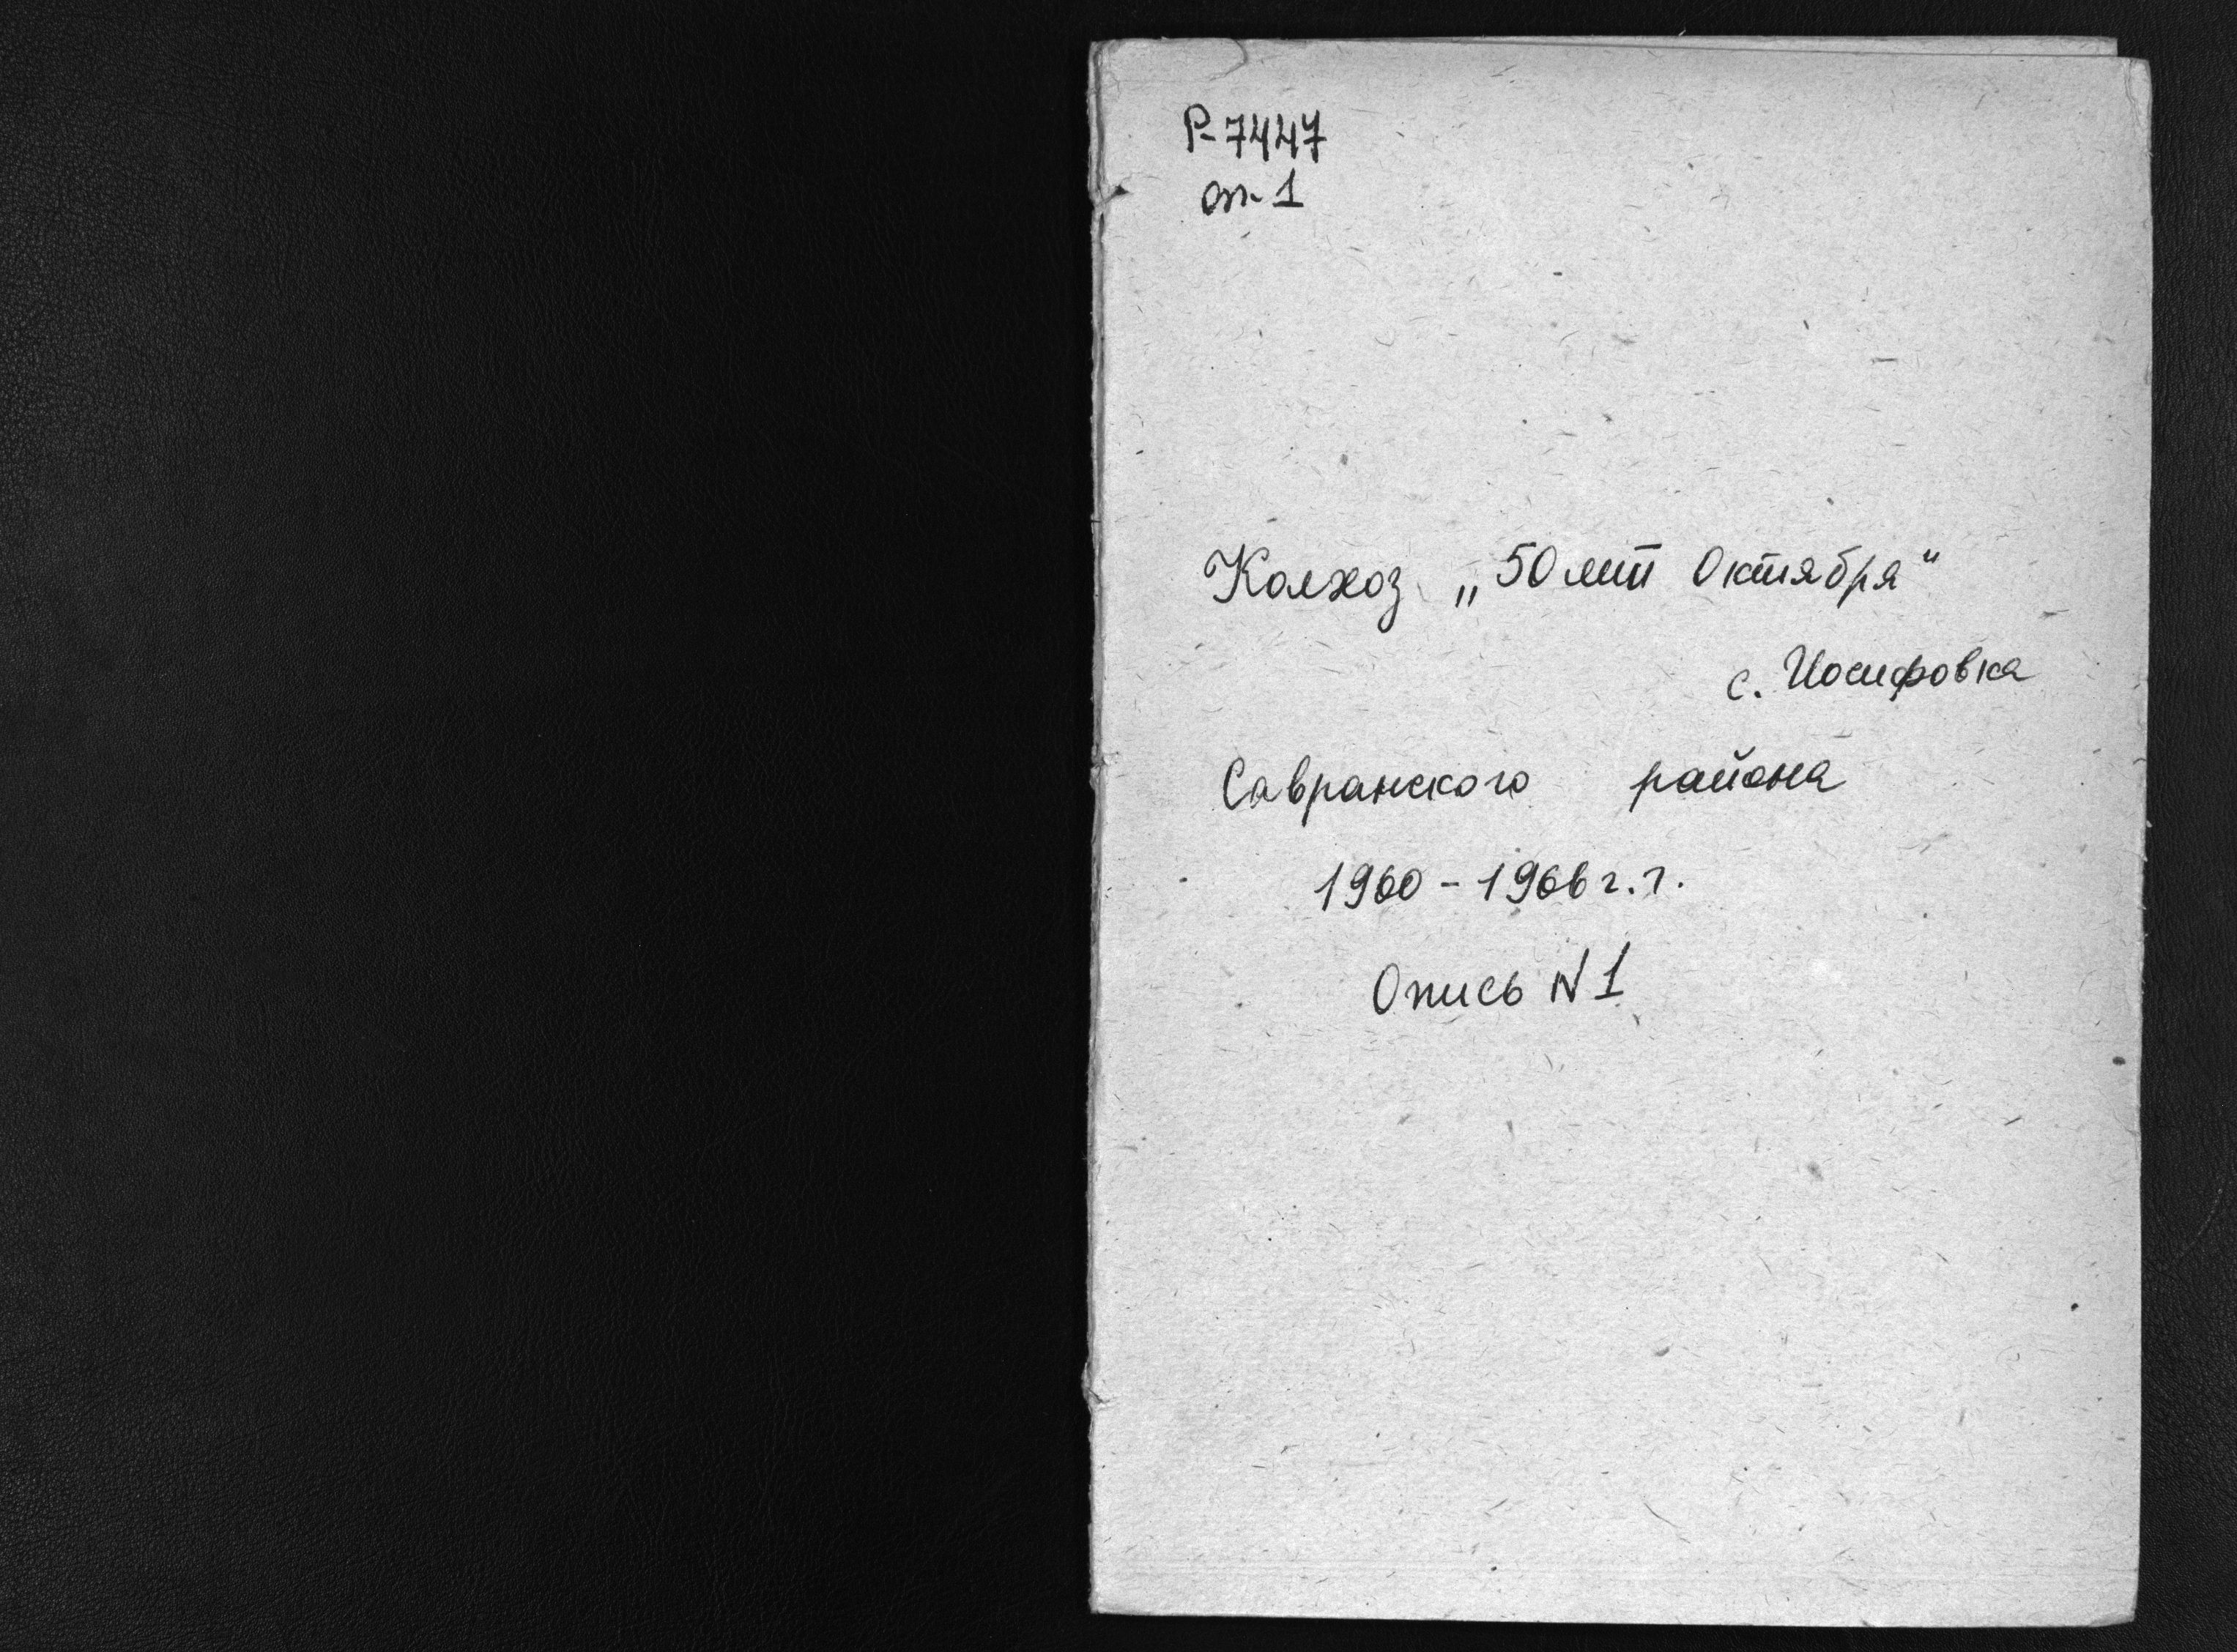 Р-7447
оп. 1
Колхоз „50 лет Октября“
с. Иосифовка
Савранского района
1960 - 1966 г.г.
Опись N 1